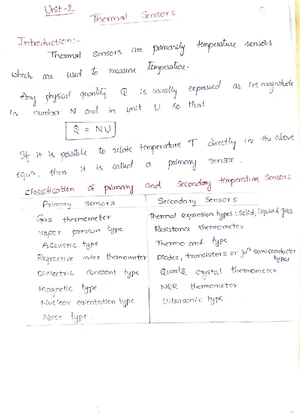 Unit-2
Thermal Sensors
Introduction:-
Thermal Sensors are primarily temperature sensors
which are used to measure Temperature.
Any physical quantity Q is usually expressed as its magnitude
in number N and in unit U so that
Q = NU
If it is possible to relate temperature 'T' directly in the above
equn. then it is called a primary sensor.
Classification of primary and Secondary temperature Sensors
Primary Sensors Secondary Sensors
Gas thermometer Thermal expansion types: solid, liquid & gas
Vapor pressure type Resistance thermometer
Acoustic type Thermo emf type
Refractive index thermometer Diodes, transistors or junc semiconductor types
Dielectric constant type Quartz crystal thermometer
Magnetic type NQR thermometer
Nuclear orientation type Ultrasonic type
Noise type.